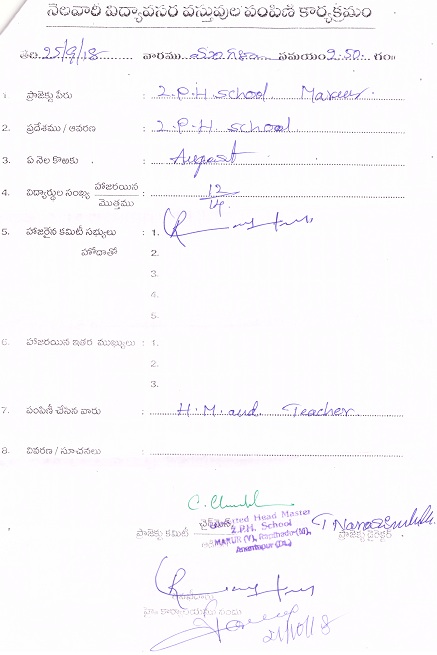 నెలవారీ విద్యావసర వస్తువుల పంపిణీ కార్యక్రమం
తేది 25/9/18 వారము మంగళ సమయం 2.50. గం
1. ప్రాజెక్టు పేరు : Z.P.H. School Mareer.
2. ప్రదేశము / ఆవరణ : Z.P.H. School.
3. ఏ నెల కొఱకు : August
4. విద్యార్థుల సంఖ్య హాజరయిన / మొత్తము : 12/14.
5. హాజరైన కమిటీ సభ్యులు : 1.
హోదాతో 2.
3.
4.
5.
6. హాజరయిన ఇతర ముఖ్యులు : 1.
2.
3.
7. పంపిణీ చేసిన వారు : H.M. and Teacher
8. వివరణ / సూచనలు :
Head Master
Z.P.H. School
MARUR (V), Rapthadu (M),
Anantapur (Dt.)
ప్రాజెక్టు కమిటీ చైర్మన్ ప్రాజెక్టు డైరెక్టర్
21/10/18